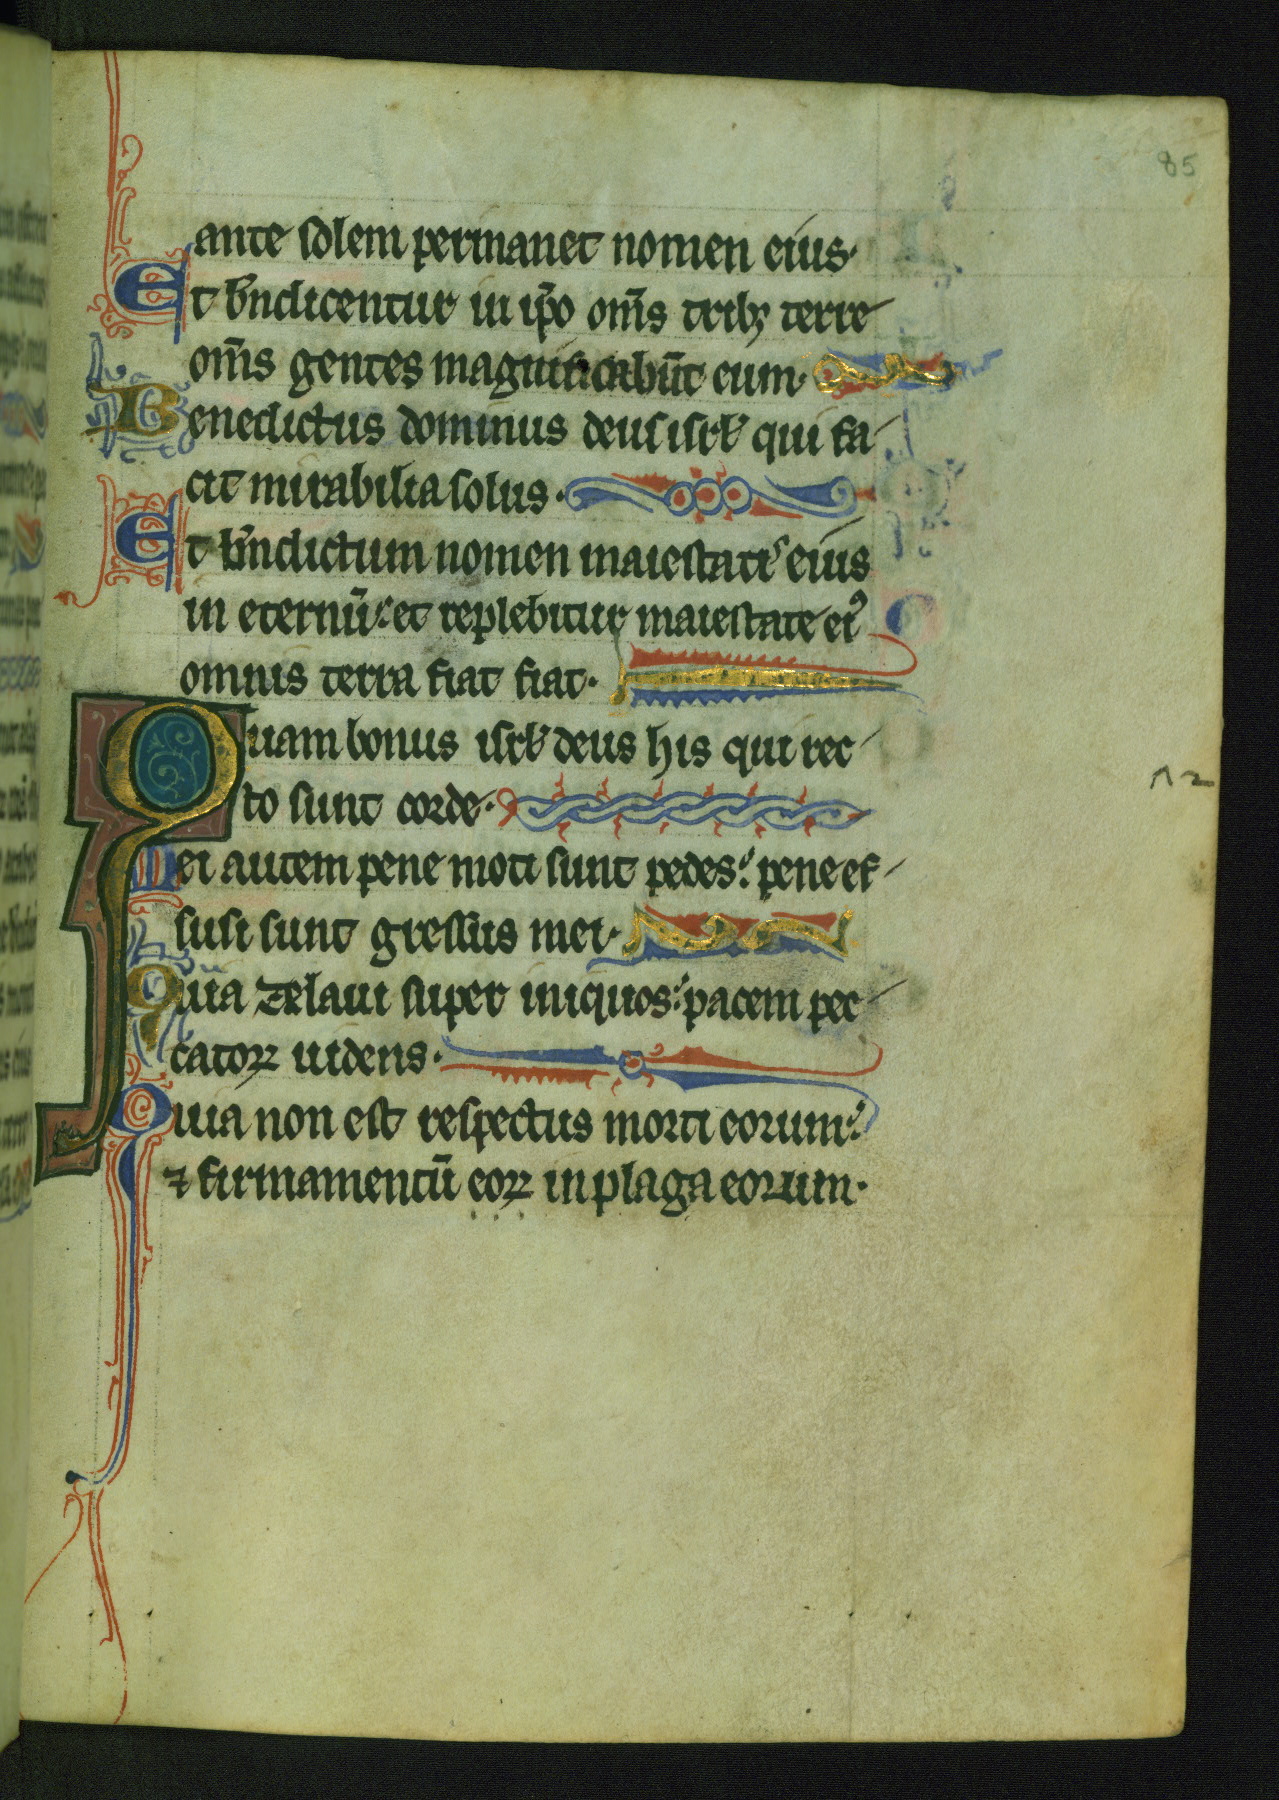 85
ante solem permanet nomen eius·
Et bñdicentur in ip̄o om̄s tribꝫ terre
om̄s gentes magnificabūt eum·
Benedictus dominus deus isrł qui fa
cit mirabilia solus·
Et bñdictum nomen maiestatis eius
in eternū: et replebitur maiestate eiꝰ
omnis terra fiat fiat·
Quam bonus isrł deus his qui rec
to sunt corde·
Mei autem pene moti sunt pedes: pene ef
fusi sunt gressus mei·
Quia zelaui super iniquos: pacem pec
catoꝝ uidens·
Quia non est respectus morti eorum:
⁊ firmamentū eoꝝ in plaga eorum·